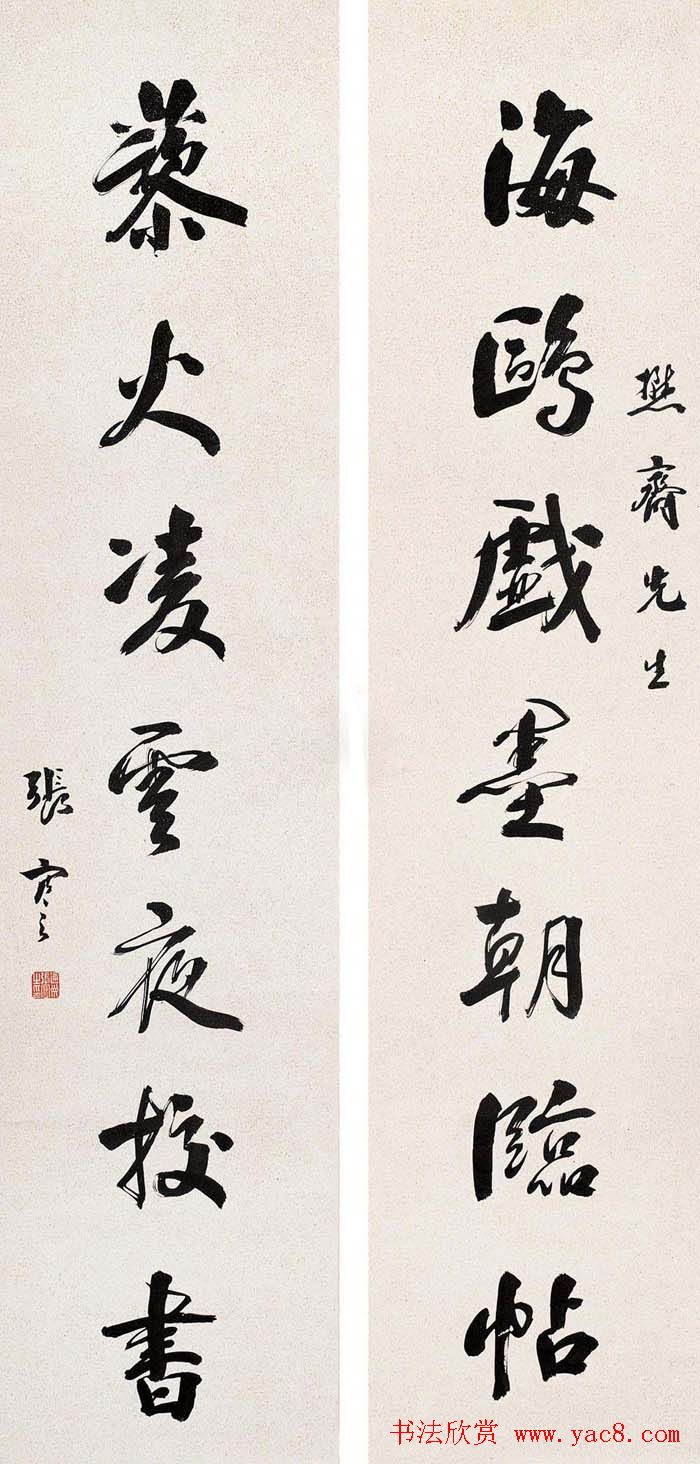 海鷗戲墨朝臨帖
懋齋先生
藜火凌雲夜校書
張寒之
书法欣赏 www.yac8.com